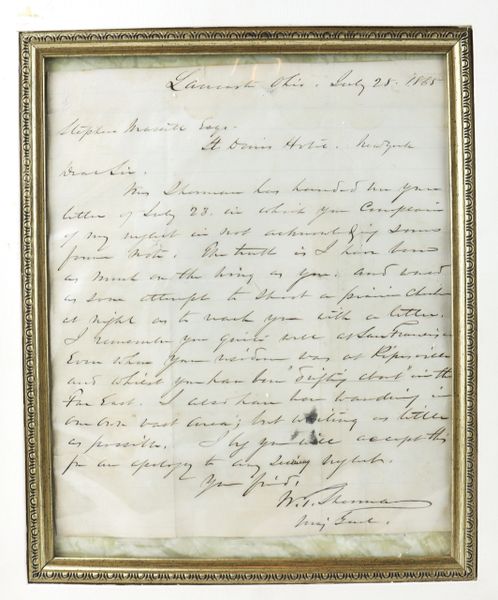 Lancaster Ohio. July 28. 1865
Stephen Massett Esqr.
St Denis Hotel. New York
Dear Sir.
Mrs Sherman has handed me your
letter of July 23. in which you complain
of my neglect in not acknowledging some
former note. The truth is I have been
as much on the wing as you. and would
as soon attempt to shoot a prairie chicken
at night as to reach you with a letter.
I remember you quite well at San Francisco
Even when your residence was at
and whilst you have been "drifting about" in the
Far East. I also have been wandering in
our own vast area; but writing as little
as possible. I beg you will accept this
for an apology to any seeming neglect.
Your friend,
W. T. Sherman
Maj Genl.